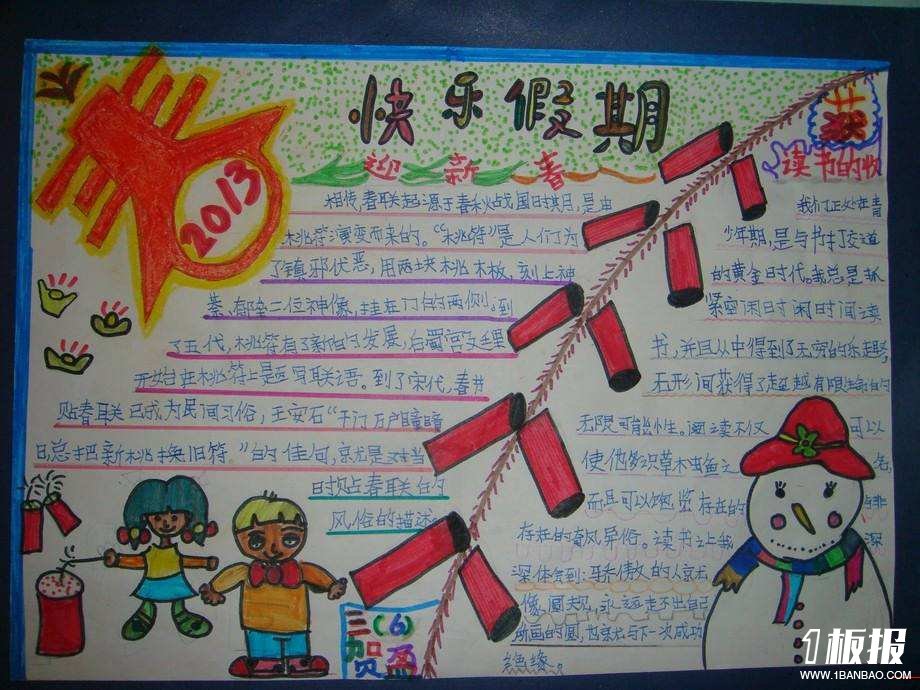 快乐假期
迎新春
2013
相传,春联起源于春秋战国时期,是由
桃符演变而来的。“桃符”是人们为
了镇邪伏恶,用两块桃木板,刻上神
荼、郁垒二位神像,挂在门的两侧。到
了五代,桃符有了新的发展,后蜀宫廷里
开始在桃符上题写联语。到了宋代,春节
贴春联已成为民间习俗,王安石“千门万户瞳瞳
日,总把新桃换旧符。”的佳句,就是对当
时贴春联的
风俗的描述。
三(6)
贺盈
读书的收
获
我们正处在青
少年期,是与书打交道
的黄金时代。我总是抓
紧空闲日时闲时间读
书,并且从中得到了无穷的乐趣,
无形间获得了超越有限生命的
无限可能性。阅读不仅可以
使他多识草木虫鱼之名,
而且可以饱览存在的 非
存在的奇风异俗。读书让我 深
深体会到:骄傲的人就
像圆规,永远走不出自己
所画的圆,也就与下一次成功
绝缘。
1板报
WWW.1BANBAO.COM